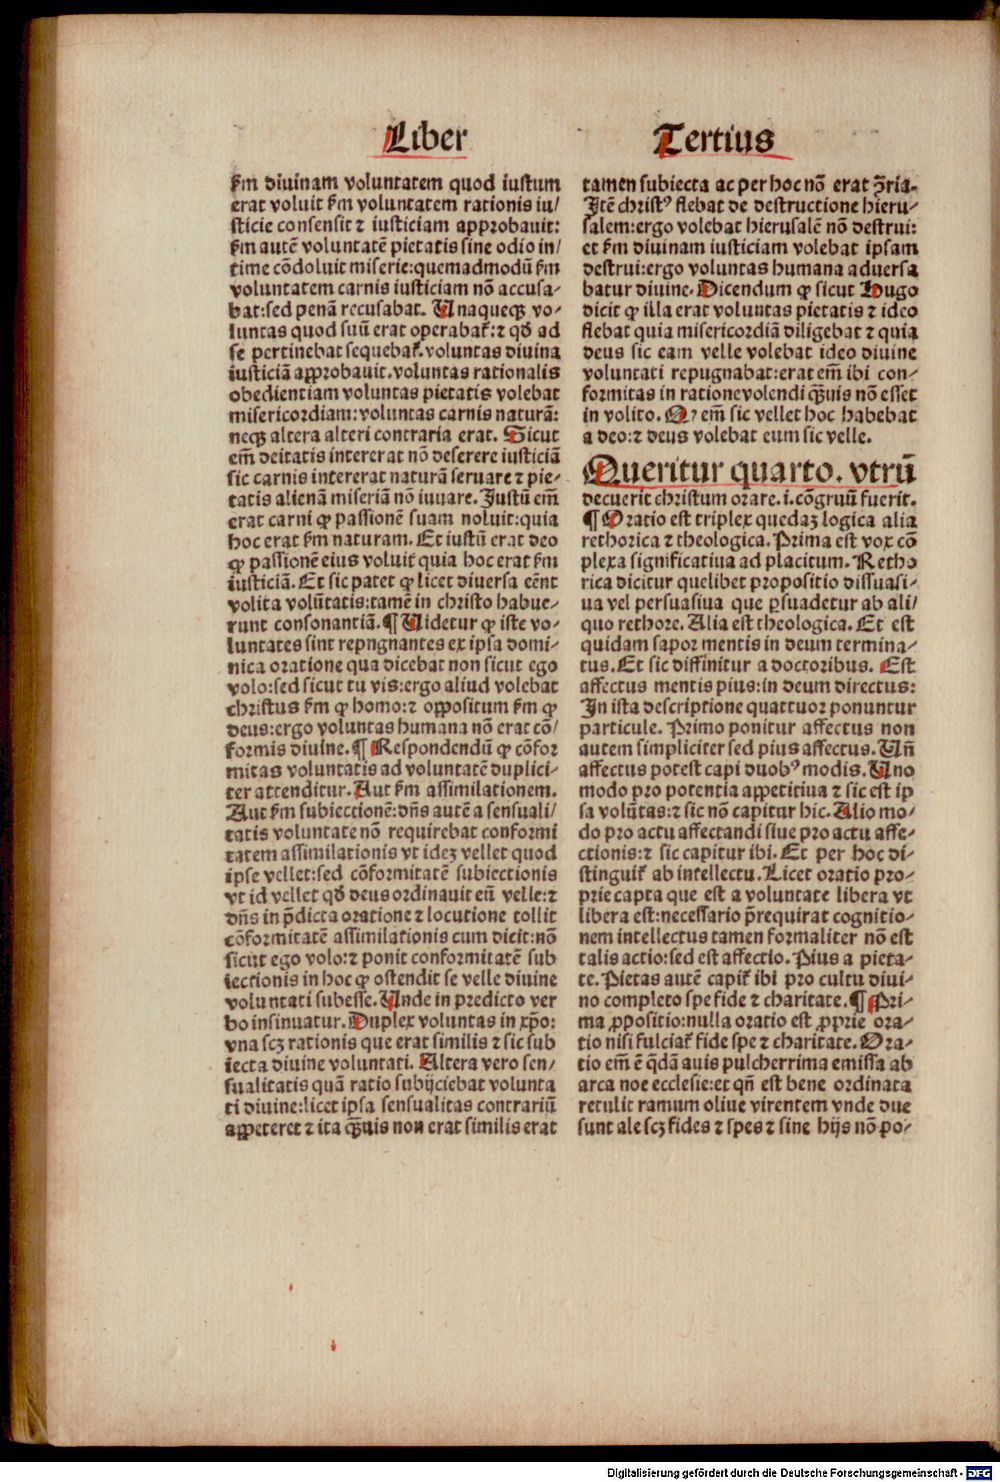 Liber Tertius
ẜm diuinam voluntatem quod iustum
erat voluit ẜm voluntatem rationis iu/
sticie consensit ⁊ iusticiam approbauit:
ẜm autē voluntatē pietatis sine odio in/
time cōdoluit miserie:quemadmodū ẜm
voluntatem carnis iusticiam nō accusa-
bat:sed penā recusabat. Unaqueqꝫ vo-
luntas quod suū erat operabat̄:⁊ qđ ad
se pertinebat sequebat̄.voluntas diuina
iusticiā approbauit.voluntas rationalis
obedientiam voluntas pietatis volebat
misericordiam:voluntas carnis naturā:
neqꝫ altera alteri contraria erat. Sicut
em̄ deitatis intererat nō deserere iusticiā
sic carnis intererat naturā seruare ⁊ pie-
tatis alienā miseriā nō iuuare. Iustū em̄
erat carni ꝙ passionē suam noluit:quia
hoc erat ẜm naturam. Et iustū erat deo
ꝙ passionē eius voluit quia hoc erat ẜm
iusticiā. Et sic patet ꝙ licet diuersa eēnt
volita volūtatis:tamē in christo habue-
runt consonantiā. ¶ Uidetur ꝙ iste vo-
luntates sint repngnantes ex ipsa domi-
nica oratione qua dicebat non sicut ego
volo:sed sicut tu vis:ergo aliud volebat
christus ẜm ꝙ homo:⁊ oppositum ẜm ꝙ
deus:ergo voluntas humana nō erat cō/
formis diuine. ¶ Respondendū ꝙ cōfor
mitas voluntatis ad voluntatē duplici-
ter attenditur. Aut ẜm assimilationem.
Aut ẜm subiectionē:dn̄s autē a sensuali/
tatis voluntate nō requirebat conformi
tatem assimilationis vt ideꝫ vellet quod
ipse vellet:sed cōformitatē subiectionis
vt id vellet qđ deus ordinauit eū velle:⁊
dn̄s in p̄dicta oratione ⁊ locutione tollit
cōformitatē assimilationis cum dicit:nō
sicut ego volo:⁊ ponit conformitatē sub
iectionis in hoc ꝙ ostendit se velle diuine
voluntati subesse. Unde in predicto ver
bo insinuatur. Duplex voluntas in xp̄o:
vna scꝫ rationis que erat similis ⁊ sic sub
iecta diuine voluntati. Altera vero sen/
sualitatis quā ratio subijciebat volunta
ti diuine:licet ipsa sensualitas contrariū
appeteret ⁊ ita qꝫuis non erat similis erat
tamen subiecta ac per hoc nō erat ꝯ̄ria-
Itē christꝰ flebat de destructione hieru-
salem:ergo volebat hierusalē nō destrui:
et ẜm diuinam iusticiam volebat ipsam
destrui:ergo voluntas humana aduersa
batur diuine. Dicendum ꝙ sicut Hugo
dicit ꝙ illa erat voluntas pietatis ⁊ ideo
flebat quia misericordiā diligebat ⁊ quia
deus sic eam velle volebat ideo diuine
voluntati repugnabat:erat em̄ ibi con-
formitas in ratione volendi qꝫuis nō esset
in volito. Qꝫ em̄ sic vellet hoc habebat
a deo:⁊ deus volebat eum sic velle.
Queritur quarto. vtrū
decuerit christum orare.i.cōgruū fuerit.
¶ Oratio est triplex quedaꝫ logica alia
rethorica ⁊ theologica. Prima est vox cō
plexa significatiua ad placitum. Retho
rica dicitur quelibet propositio dissuasi-
ua vel persuasiua que ꝑsuadetur ab ali/
quo rethore. Alia est theologica. Et est
quidam sapor mentis in deum termina-
tus. Et sic diffinitur a doctoribus. Est
affectus mentis pius:in deum directus:
In ista descriptione quattuor ponuntur
particule. Primo ponitur affectus non
autem simpliciter sed pius affectus. Un̄
affectus potest capi duobꝰ modis. Uno
modo pro potentia appetitiua ⁊ sic est ip
sa volūtas:⁊ sic nō capitur hic. Alio mo-
do pro actu affectandi siue pro actu affe-
ctionis:⁊ sic capitur ibi. Et per hoc di-
stinguit̄ ab intellectu. Licet oratio pro-
prie capta que est a voluntate libera vt
libera est:necessario p̄requirat cognitio-
nem intellectus tamen formaliter nō est
talis actio:sed est affectio. Pius a pieta-
te. Pietas autē capit̄ ibi pro cultu diui-
no completo spe fide ⁊ charitate. ¶ Pri-
ma ꝓpositio:nulla oratio est ꝓprie ora-
tio nisi fulciat̄ fide spe ⁊ charitate. Ora-
tio em̄ ē q̄dā auis pulcherrima emissa ab
arca noe ecclesie:et qn̄ est bene ordinata
retulit ramum oliue virentem vnde due
sunt ale scꝫ fides ⁊ spes ⁊ sine hijs nō po-
Digitalisierung gefördert durch die Deutsche Forschungsgemeinschaft - DFG